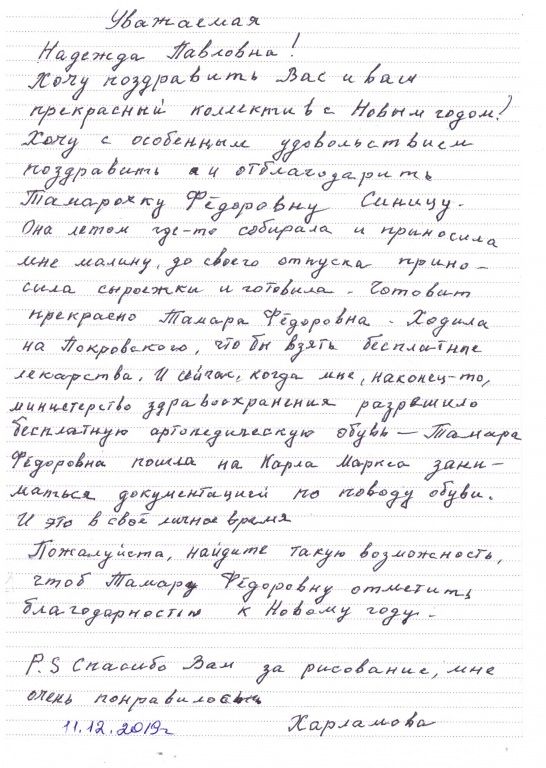 Уважаемая
Надежда Павловна!
Хочу поздравить Вас и ваш
прекрасный коллектив с Новым годом!
Хочу с особенным удовольствием
поздравить и отблагодарить
Тамарочку Фёдоровну Синицу.
Она летом где-то собирала и приносила
мне малину, до своего отпуска прино-
сила сыроежки и готовила. Готовит
прекрасно Тамара Фёдоровна. Ходила
на Покровского, что бы взять бесплатные
лекарства. И сейчас, когда мне, наконец-то,
министерство здравоохранения разрешило
бесплатную артопедическую обувь — Тамара
Фёдоровна пошла на Карла Маркса зани-
маться документацией по поводу обуви.
И это в своё личное время
Пожалуйста, найдите такую возможность,
чтоб Тамару Фёдоровну отметить
благодарностью к Новому году.
P.S Спасибо Вам за рисование, мне
очень понравилось
11.12.2019г Харламова